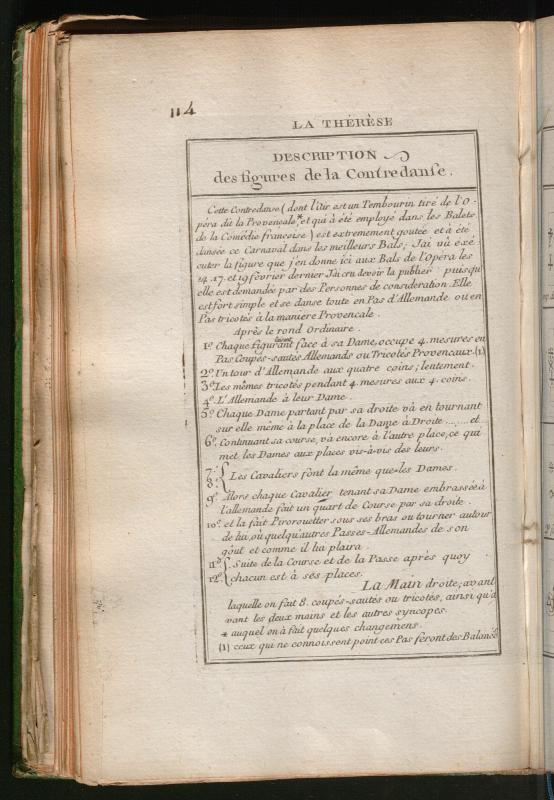 114
LA THÉRÈSE
DESCRIPTION
des figures de la Contredanse.
Cette Contredanse (dont l'Air est un Tembourin tiré de l'O-
péra dit la Provençale,* et qui à été employé dans les Balets
de la Comédie françoise) est extremement goutée et à été
dansée ce Carnaval dans les meilleurs Bals; J'ai vû exé-
cuter la figure que j'en donne ici aux Bals de l'Opéra les
14. 17. et 19 février dernier J'ai cru devoir la publier puisqu'
elle est demandée par des Personnes de consideration. Elle
est fort simple et se danse toute en Pas d'Allemande ou en
Pas tricotés à la maniere Provencale.
Après le rond Ordinaire.
1º. Chaque figurant faisant face à sa Dame, occupe 4. mesures en
Pas Coupés-sautés Allemands ou Tricotés Provencaux.(1)
2º. Un tour d'Allemande aux quatre coins; lentement.
3º. Les mêmes tricotés pendant 4. mesures aux 4. coins.
4º. L'Allemande à leur Dame.
5º. Chaque Dame partant par sa droite và en tournant
sur elle même à la place de la Dame à Droite ........ et
6º. Continuant sa course, và encore à l'autre place, ce qui
met les Dames aux places vis-à-vis des leurs.
7º.
8º. { Les Cavaliers font la même que les Dames.
9º. Alors chaque Cavalier tenant sa Dame embrassée à
l'allemande fait un quart de Course par sa droite.
10º. et la fait Pirorouetter sous ses bras ou tourner autour
de lui, où quelqu'autres Passes-Allemandes de son
goût et comme il lui plaira.
11º. { Suite de la Course et de la Passe après quoy
12º. { chacun est à ses places.
La Main droite, avant
laquelle on fait 8. coupés-sautés ou tricotés, ainsi qu'a
vant les deux mains et les autres syncopes.
* auquel on à fait quelques changemens.
(1) ceux qui ne connoissent point ces Pas feront des Balancés